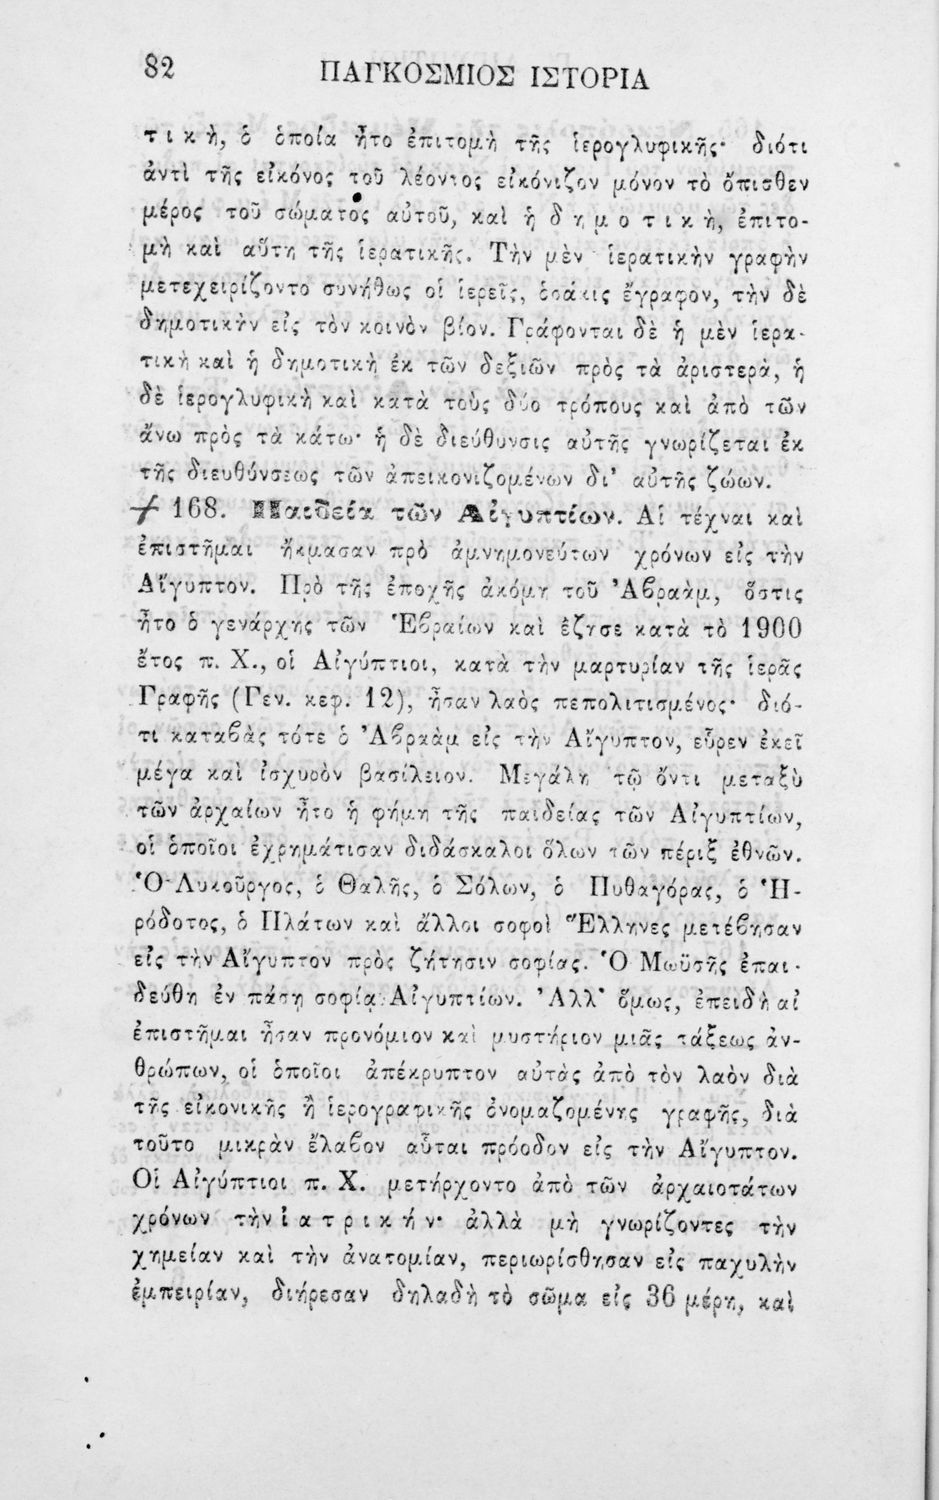 82
ΠΑΓΚΟΣΜΙΟΣ ΙΣΤΟΡΙΑ
τ ι κ ὴ, ὁ ὁποία ἦτο ἐπιτομὴ τῆς ἱερογλυφικῆς· διότι
ἀντὶ τῆς εἰκόνος τοῦ λέοντος εἰκόνιζον μόνον τὸ ὄπισθεν
μέρος τοῦ σώματος αὐτοῦ, καὶ ἡ δ η μ ο τ ι κ ὴ, ἐπιτο-
μὴ καὶ αὕτη τῆς ἱερατικῆς. Τὴν μὲν ἱερατικὴν γραφὴν
μετεχειρίζοντο συνήθως οἱ ἱερεῖς, ὁσάκις ἔγραφον, τὴν δὲ
δημοτικὴν εἰς τὸν κοινὸν βίον. Γράφονται δὲ ἡ μὲν ἱερα-
τικὴ καὶ ἡ δημοτικὴ ἐκ τῶν δεξιῶν πρὸς τὰ ἀριστερὰ, ἡ
δὲ ἱερογλυφικὴ καὶ κατὰ τοὺς δύο τρόπους καὶ ἀπὸ τῶν
ἄνω πρὸς τὰ κάτω· ἡ δὲ διεύθυνσις αὐτῆς γνωρίζεται ἐκ
τῆς διευθύνσεως τῶν ἀπεικονιζομένων δι' αὐτῆς ζώων.
168. Παιδεία τῶν Αἰγυπτίων. Αἱ τέχναι καὶ
ἐπιστῆμαι ἤκμασαν πρὸ ἀμνημονεύτων χρόνων εἰς τὴν
Αἴγυπτον. Πρὸ τῆς ἐποχῆς ἀκόμη τοῦ Ἀβραὰμ, ὅστις
ἦτο ὁ γενάρχης τῶν Ἑβραίων καὶ ἔζησε κατὰ τὸ 1900
ἔτος π. Χ., οἱ Αἰγύπτιοι, κατὰ τὴν μαρτυρίαν τῆς ἱερᾶς
Γραφῆς (Γεν. κεφ. 12), ἦσαν λαὸς πεπολιτισμένος· διό-
τι καταβὰς τότε ὁ Ἀβραὰμ εἰς τὴν Αἴγυπτον, εὗρεν ἐκεῖ
μέγα καὶ ἰσχυρὸν βασίλειον. Μεγάλη τῷ ὄντι μεταξὺ
τῶν ἀρχαίων ἦτο ἡ φήμη τῆς παιδείας τῶν Αἰγυπτίων,
οἱ ὁποῖοι ἐχρημάτισαν διδάσκαλοι ὅλων τῶν πέριξ ἐθνῶν.
Ὁ Λυκοῦργος, ὁ Θαλῆς, ὁ Σόλων, ὁ Πυθαγόρας, ὁ Ἡ-
ρόδοτος, ὁ Πλάτων καὶ ἄλλοι σοφοὶ Ἕλληνες μετέβησαν
εἰς τὴν Αἴγυπτον πρὸς ζήτησιν σοφίας. Ὁ Μωϋσῆς ἐπαι-
δεύθη ἐν πάσῃ σοφίᾳ Αἰγυπτίων. Ἀλλ' ὅμως, ἐπειδὴ αἱ
ἐπιστῆμαι ἦσαν προνόμιον καὶ μυστήριον μιᾶς τάξεως ἀν-
θρώπων, οἱ ὁποῖοι ἀπέκρυπτον αὐτὰς ἀπὸ τὸν λαὸν διὰ
τῆς εἰκονικῆς ἢ ἱερογραφικῆς ὀνομαζομένης γραφῆς, διὰ
τοῦτο μικρὰν ἔλαβον αὗται πρόοδον εἰς τὴν Αἴγυπτον.
Οἱ Αἰγύπτιοι π. Χ. μετήρχοντο ἀπὸ τῶν ἀρχαιοτάτων
χρόνων τὴν ἰ α τ ρ ι κ ή ν· ἀλλὰ μὴ γνωρίζοντες τὴν
χημείαν καὶ τὴν ἀνατομίαν, περιωρίσθησαν εἰς παχυλὴν
ἐμπειρίαν, διήρεσαν δηλαδὴ τὸ σῶμα εἰς 36 μέρη, καὶ